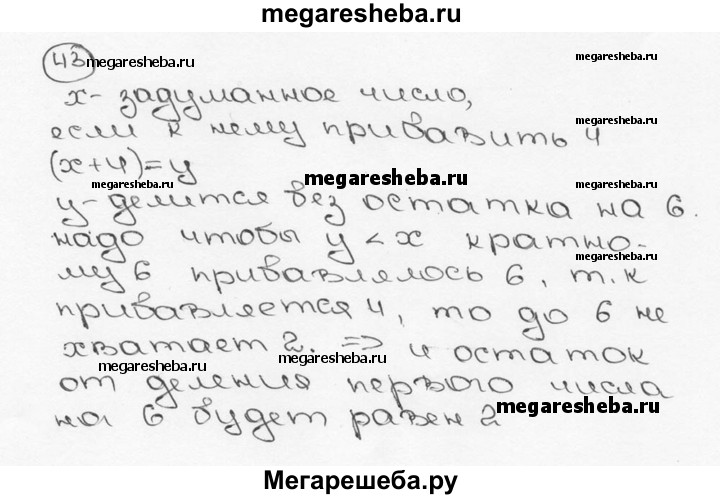 megaresheba.ru
43 megaresheba.ru megaresheba.ru
x - задуманное число,
если к нему прибавить 4
(x+4)=y
megaresheba.ru megaresheba.ru
y-делится без остатка на 6.
надо чтобы y < x кратно-
му 6 прибавлялось 6, т.к
прибавляется 4, то до 6 не
хватает 2. => и остаток
megaresheba.ru megaresheba.ru
от деления первого числа
на 6 будет равен 2
megaresheba.ru
Мегарешеба.ру